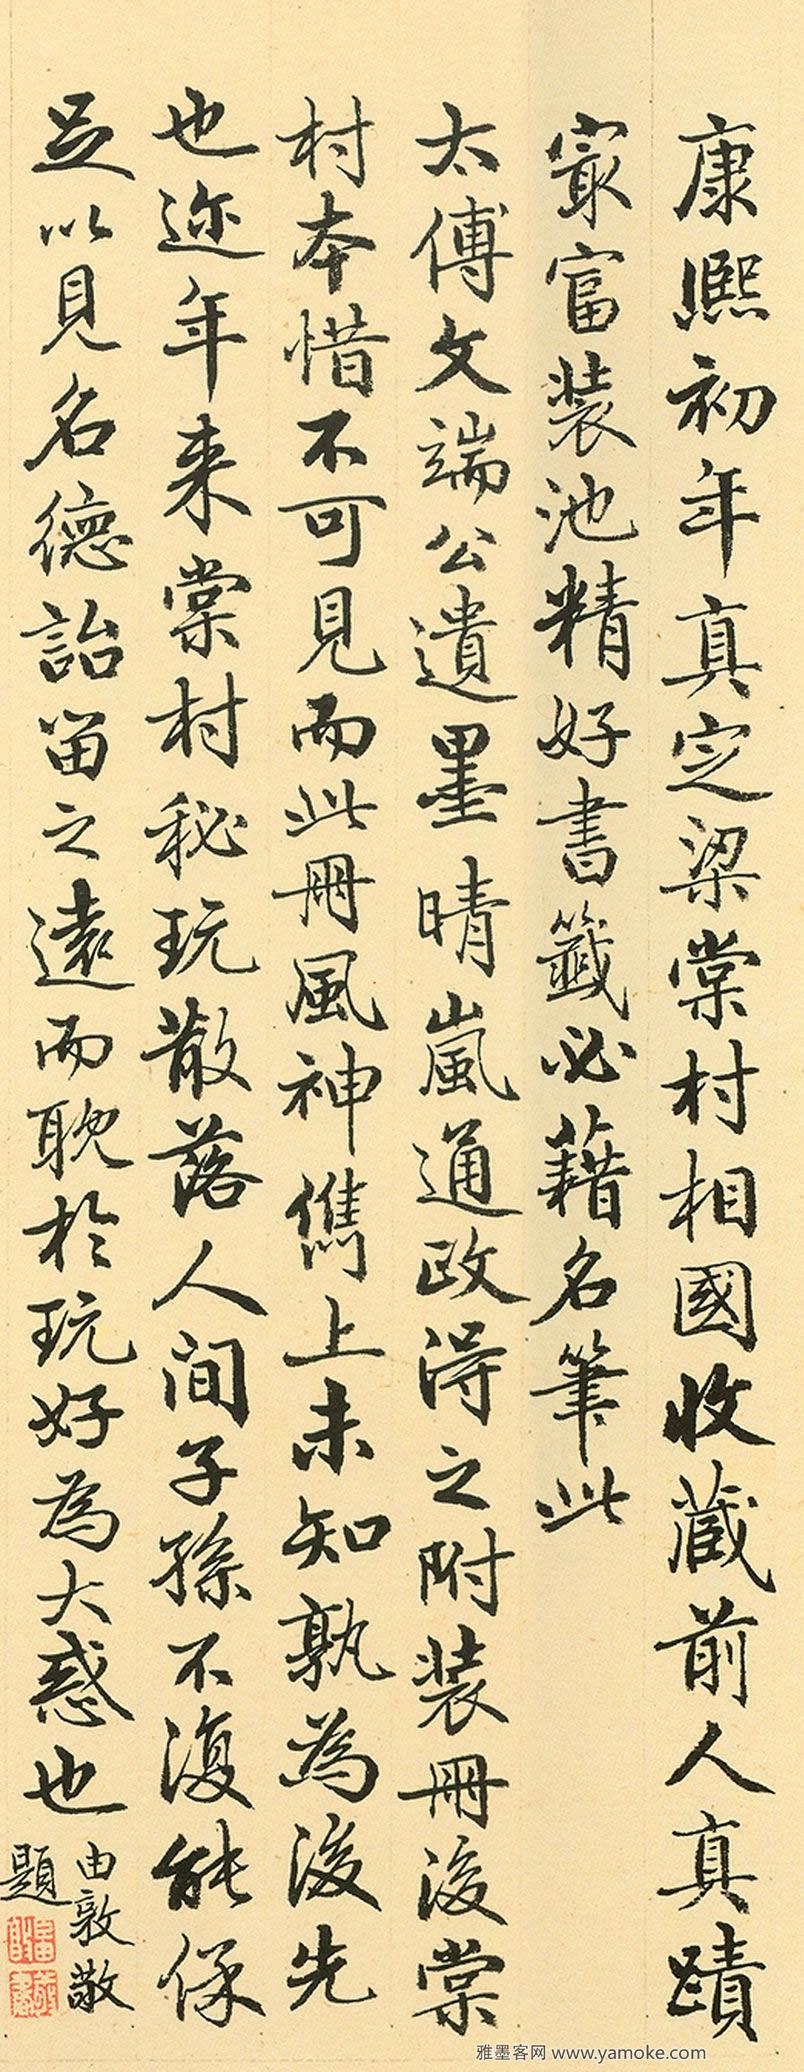 康熙初年真定梁棠村相國收藏前人真蹟
寂富装池精好書籤必藉名筆此
太傅文端公遺墨晴嵐通政得之附装冊後棠
村本惜不可見而此冊風神儁上未知孰為後先
也迩年来棠村秘玩散落人间子孫不復能保
足以見名德詒留之遠而耽於玩好為大惑也
由敦敬
題
雅墨客网 www.yamoke.com